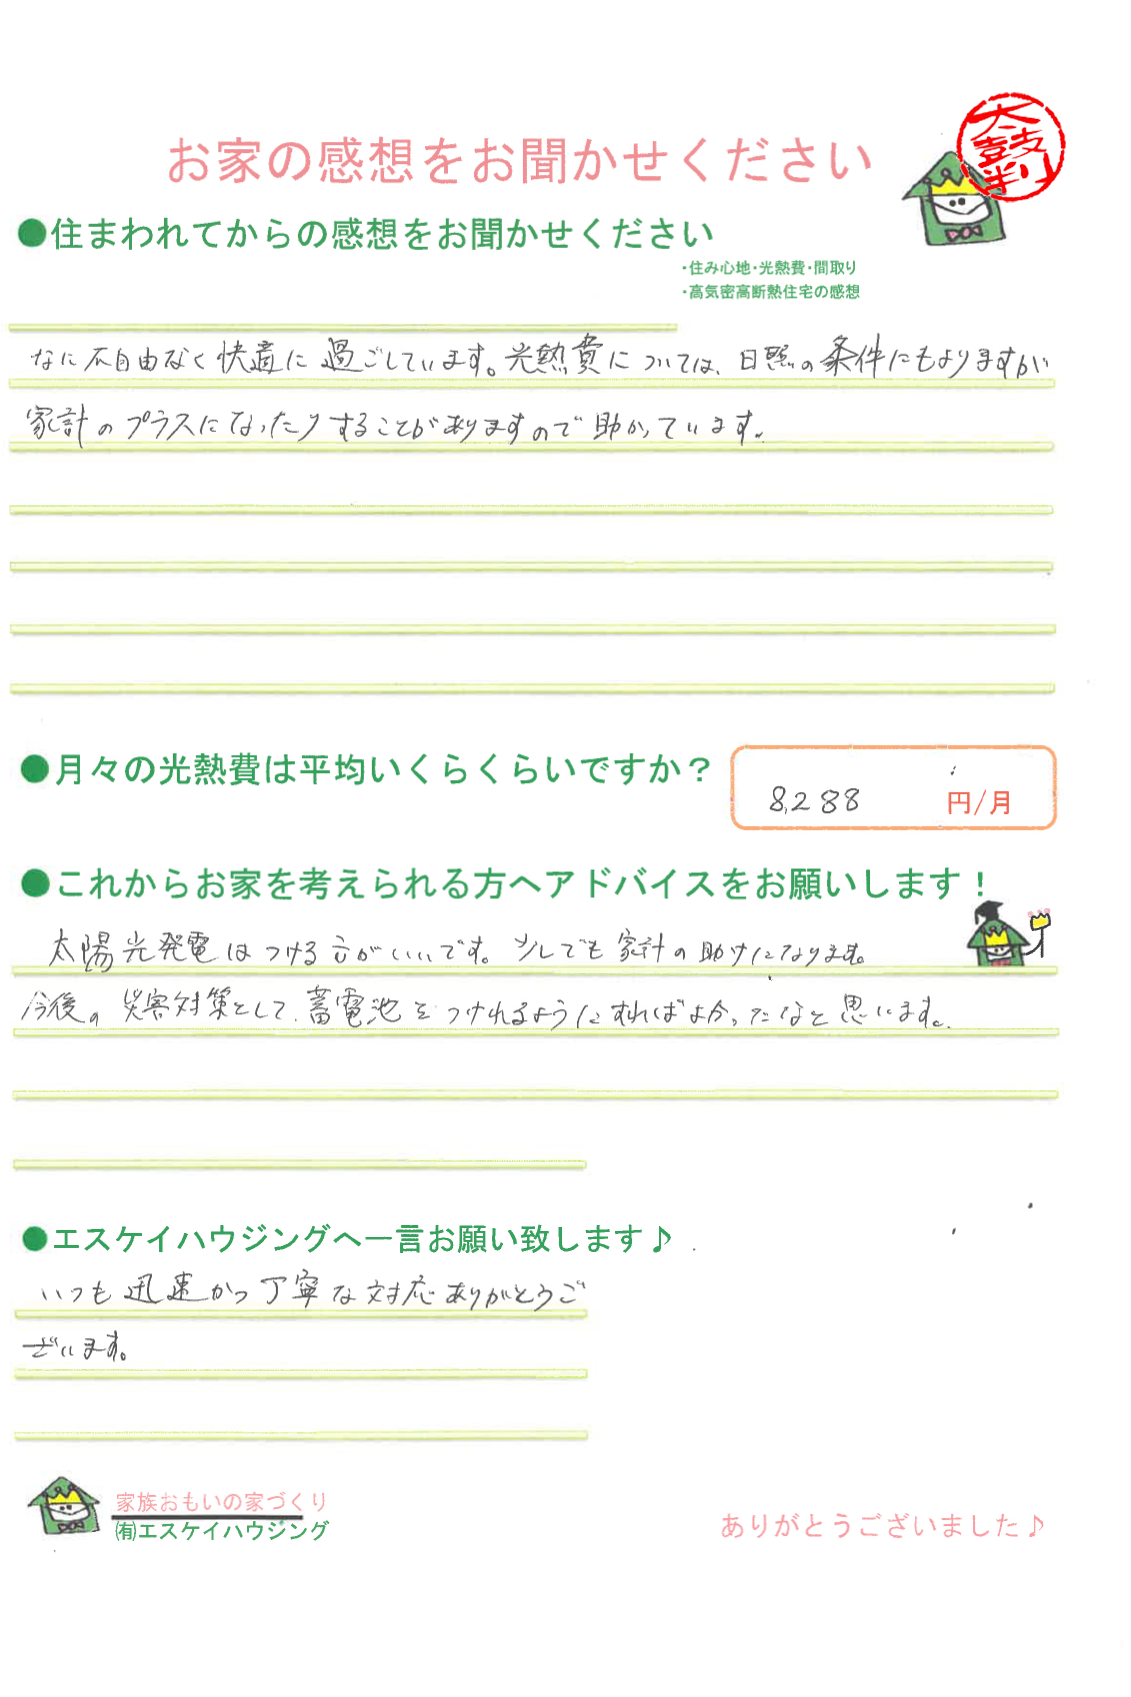 お家の感想をお聞かせください
太鼓判
●住まわれてからの感想をお聞かせください
・住み心地・光熱費・間取り
・高気密高断熱住宅の感想
なに不自由なく快適に過ごしています。光熱費については、日照の条件にもよりますが
家計のプラスになったりすることがありますので助かっています。
●月々の光熱費は平均いくらくらいですか？
8,288 円/月
●これからお家を考えられる方へアドバイスをお願いします！
太陽光発電はつける方がいいです。少しでも家計の助けになります。
今後の災害対策として、蓄電池をつけれるようにすればよかったなと思います。
●エスケイハウジングへ一言お願い致します♪
いつも迅速かつ丁寧な対応ありがとうご
ざいます。
家族おもいの家づくり
㈲エスケイハウジング
ありがとうございました♪